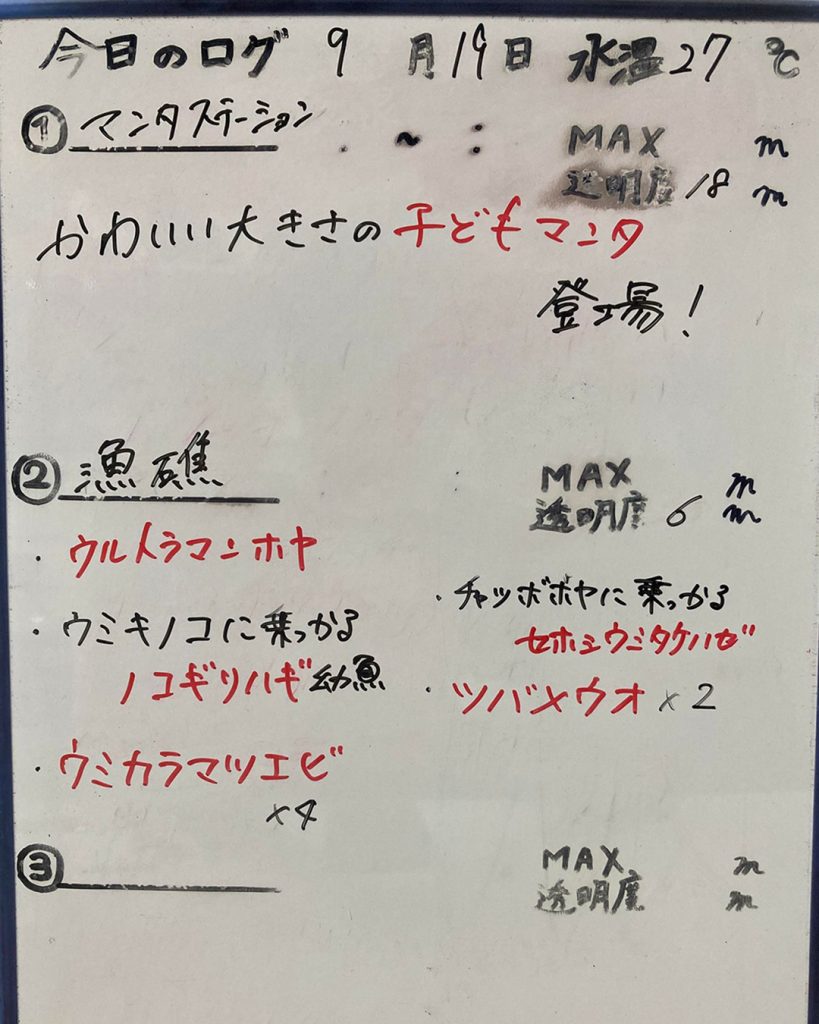 今日のログ 9月19日 水温27℃
① マンタステーション . ~ : MAX m
透明度 18 m
かわいい大きさの子どもマンタ
登場!
② 漁礁 MAX m
透明度 6 m
・ウルトラマンホヤ
・ウミキノコに乗っかる
ノコギリハギ幼魚
・ウミカラマツエビ
×4
・チャツボボヤに乗っかる
セホシウミタケハゼ
・ツバメウオ×2
③ MAX m
透明度 m